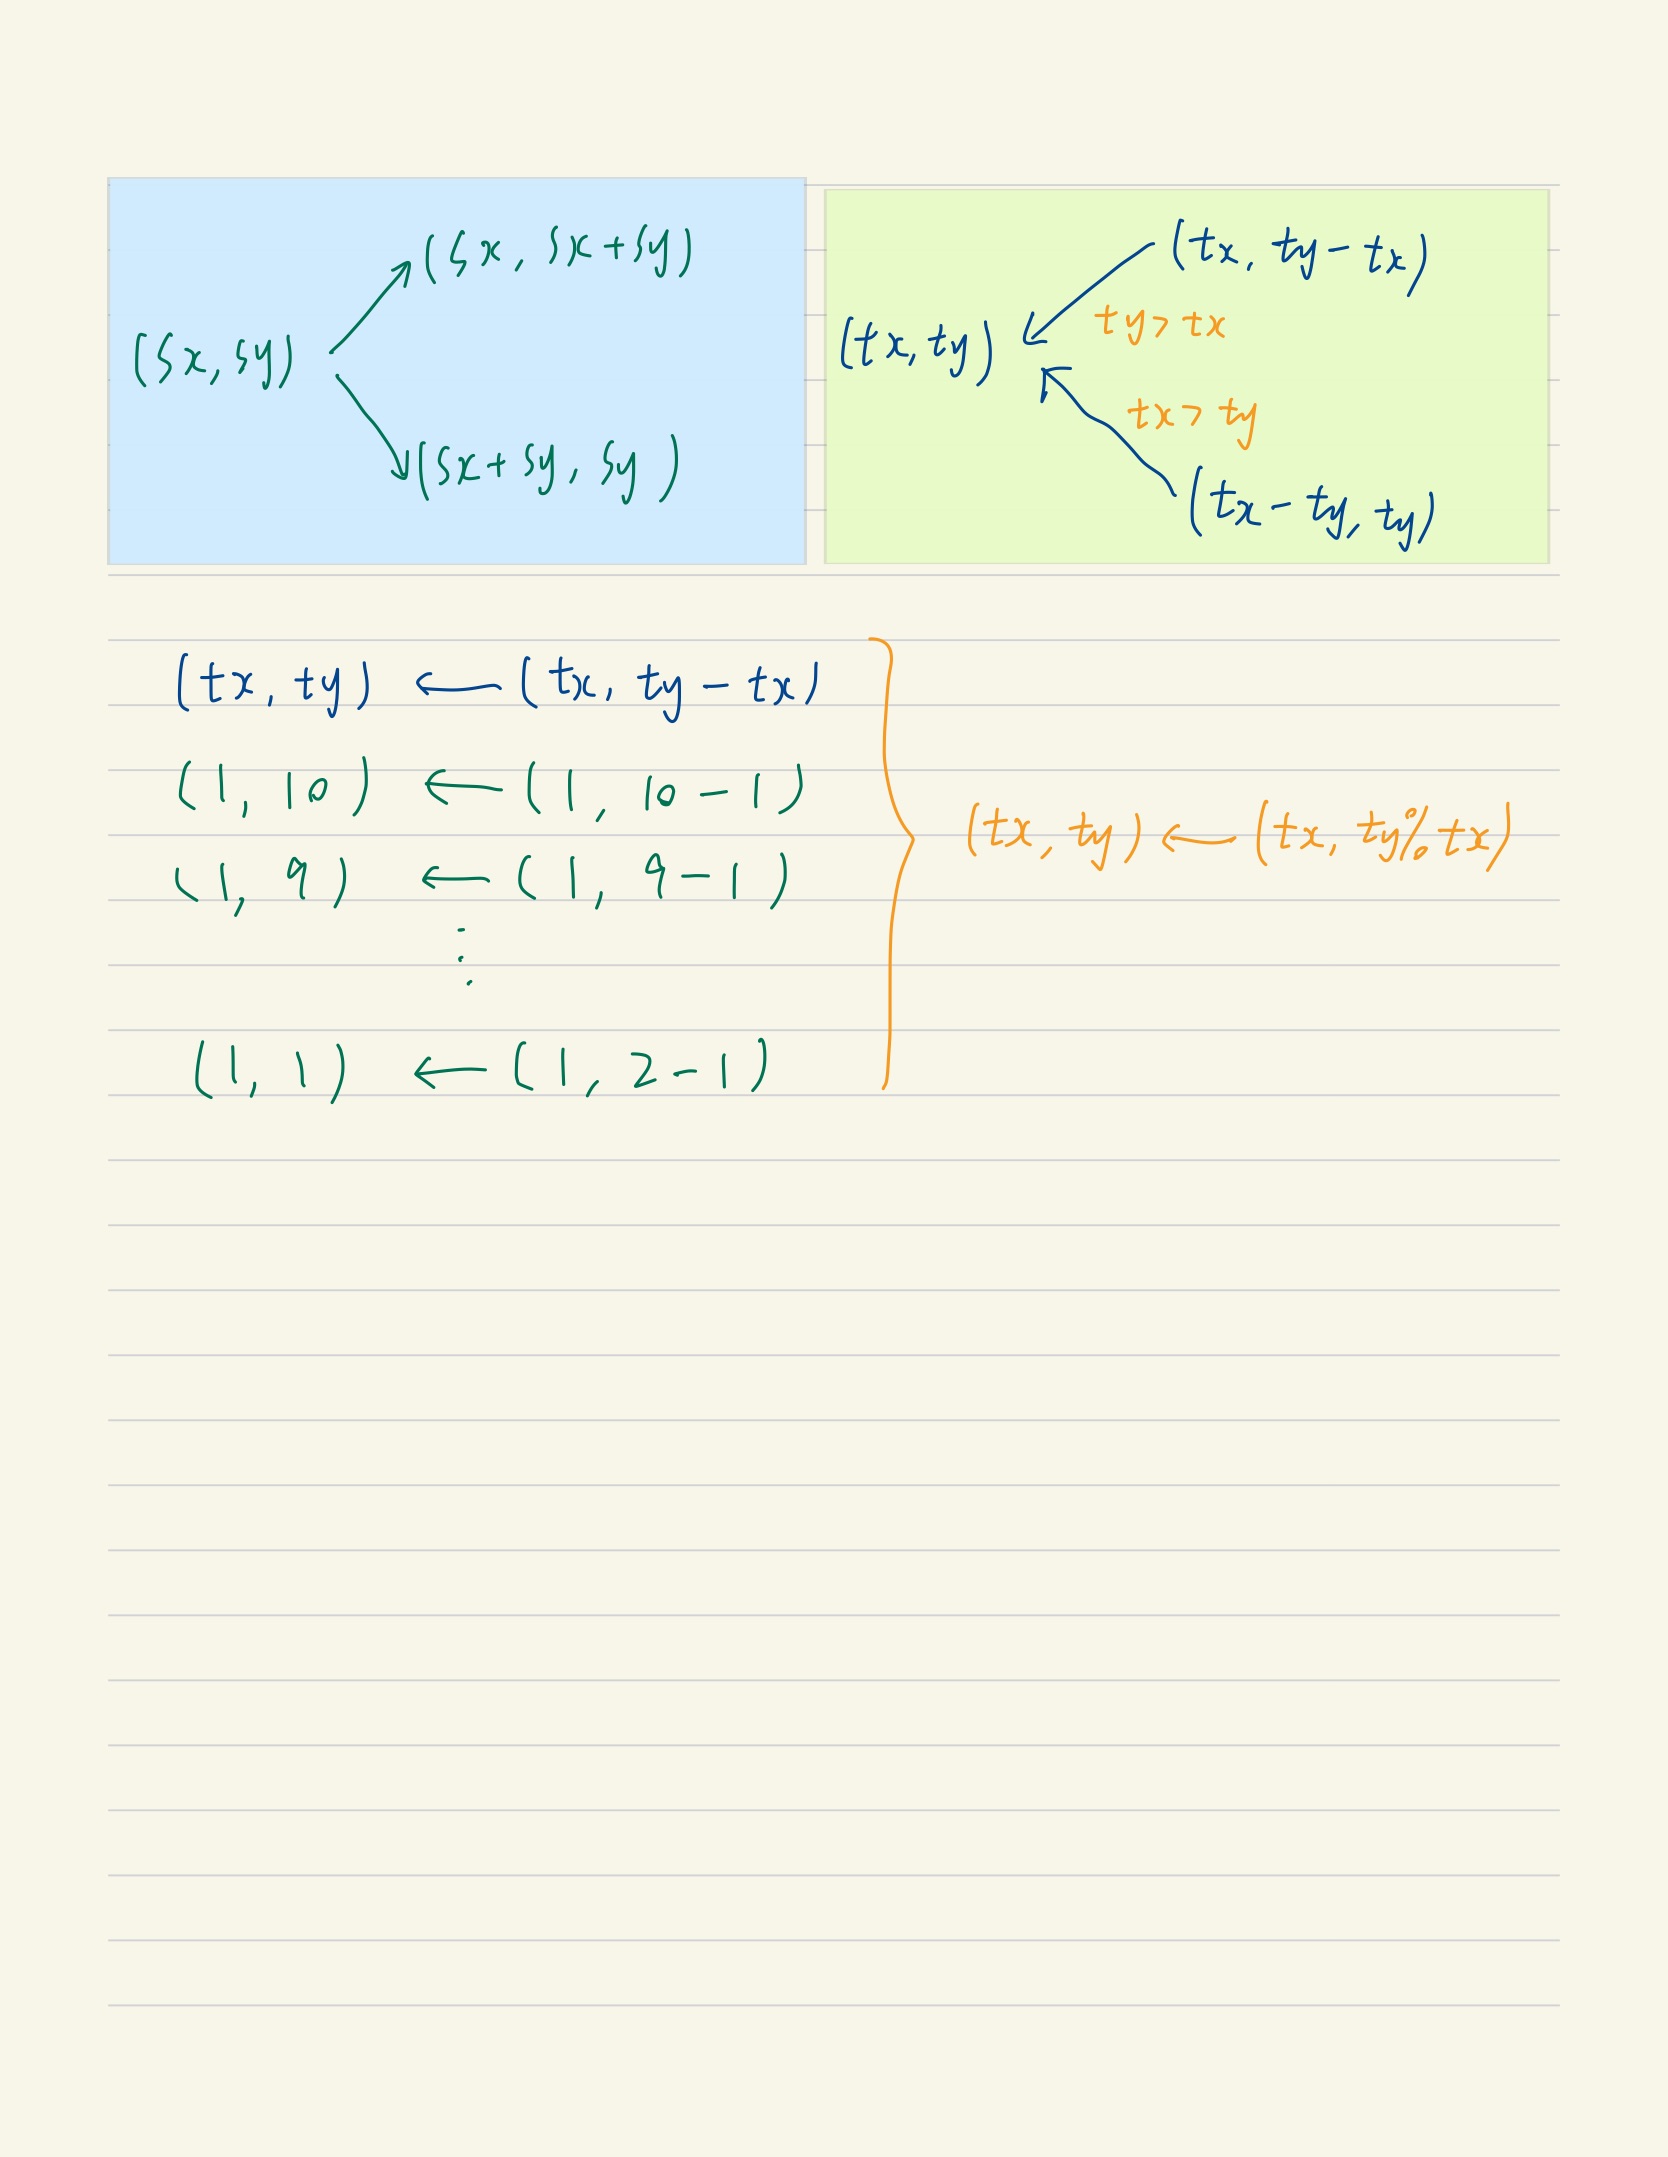 (sx, sy)
(sx, sx+sy)
(sx+sy, sy)
(tx, ty)
(tx, ty-tx)
ty > tx
tx > ty
(tx-ty, ty)
(tx, ty) ← (tx, ty-tx)
(1, 10) ← (1, 10-1)
(1, 9) ← (1, 9-1)
⋮
(1, 1) ← (1, 2-1)
(tx, ty) ← (tx, ty%tx)